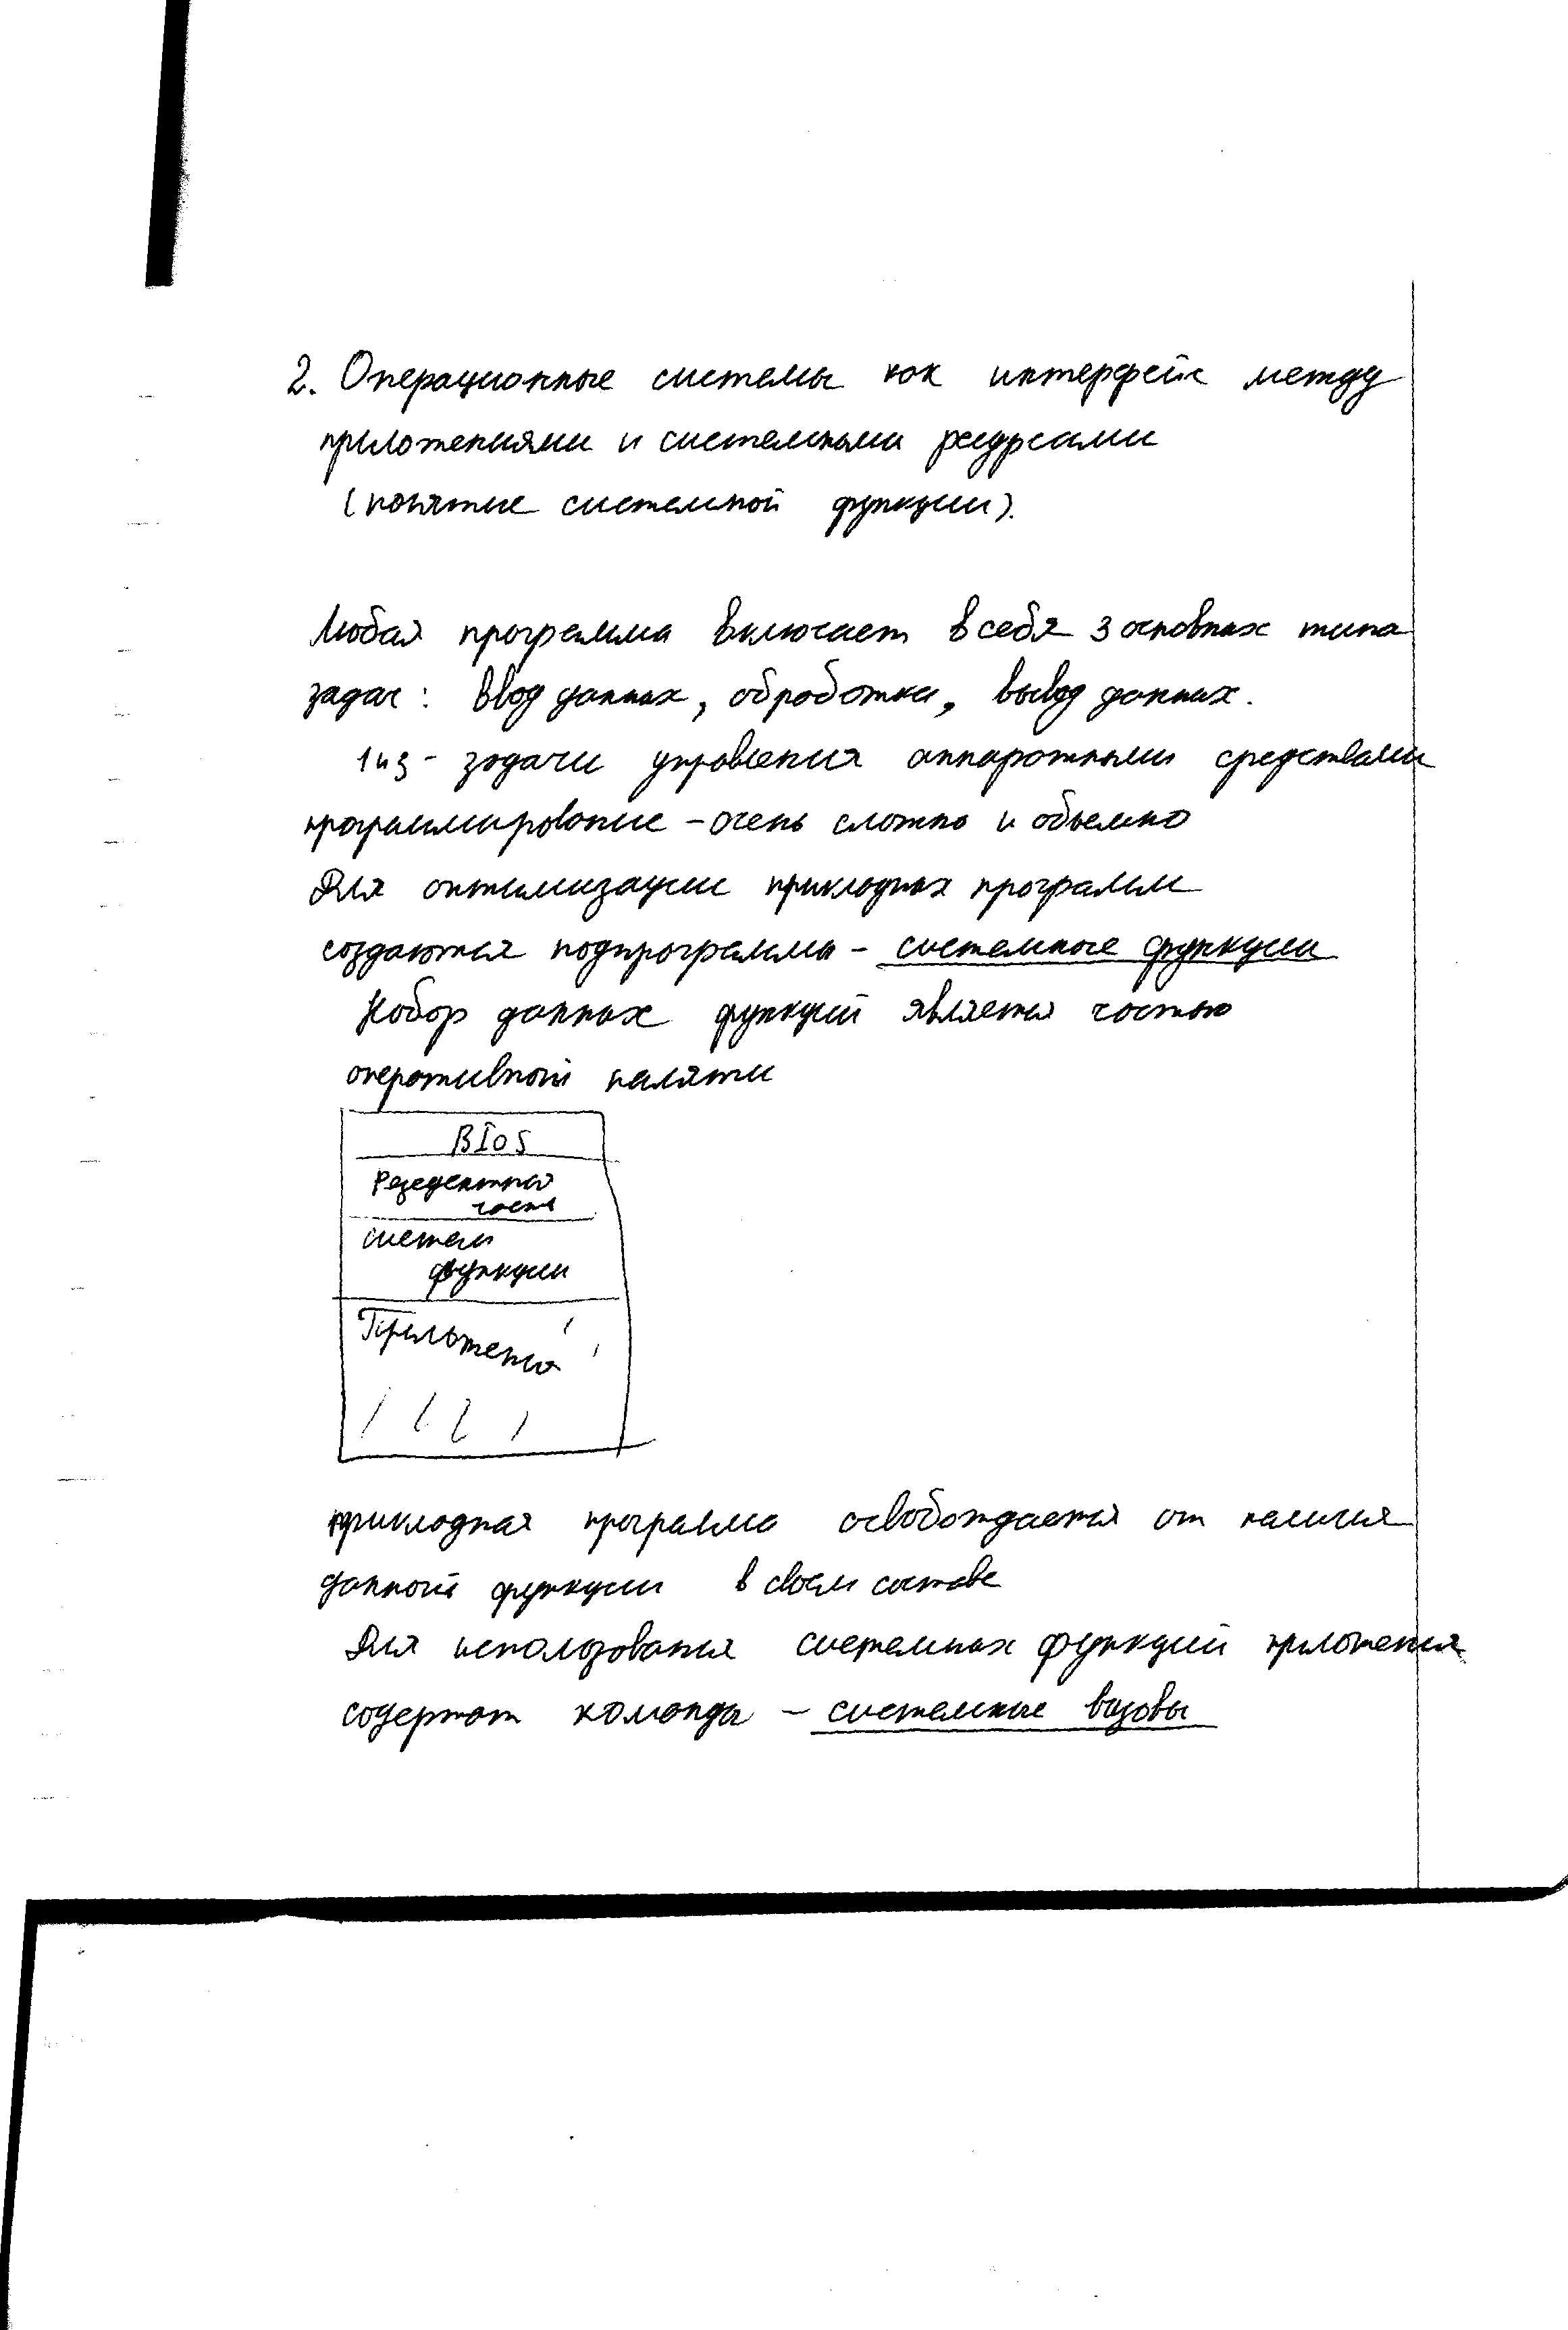 2. Операционные системы как интерфейс между
приложениями и системными ресурсами
(понятие системной функции).
Любая программа включает в себя 3 основных типа
задач: Ввод данных, обработка, вывод данных.
1 и 3 - задачи управления аппаратными средствами
программирование - очень сложно и объемно
Для оптимизации прикладных программ
создаются подпрограммы - системные функции
Набор данных функций является частью
оперативной памяти
BIOS
Резедентная
часть
систем
функции
Приложения
прикладная программа освобождается от наличия
данной функции в своем составе
Для использования системных функций приложения
содержат команды - системные вызовы